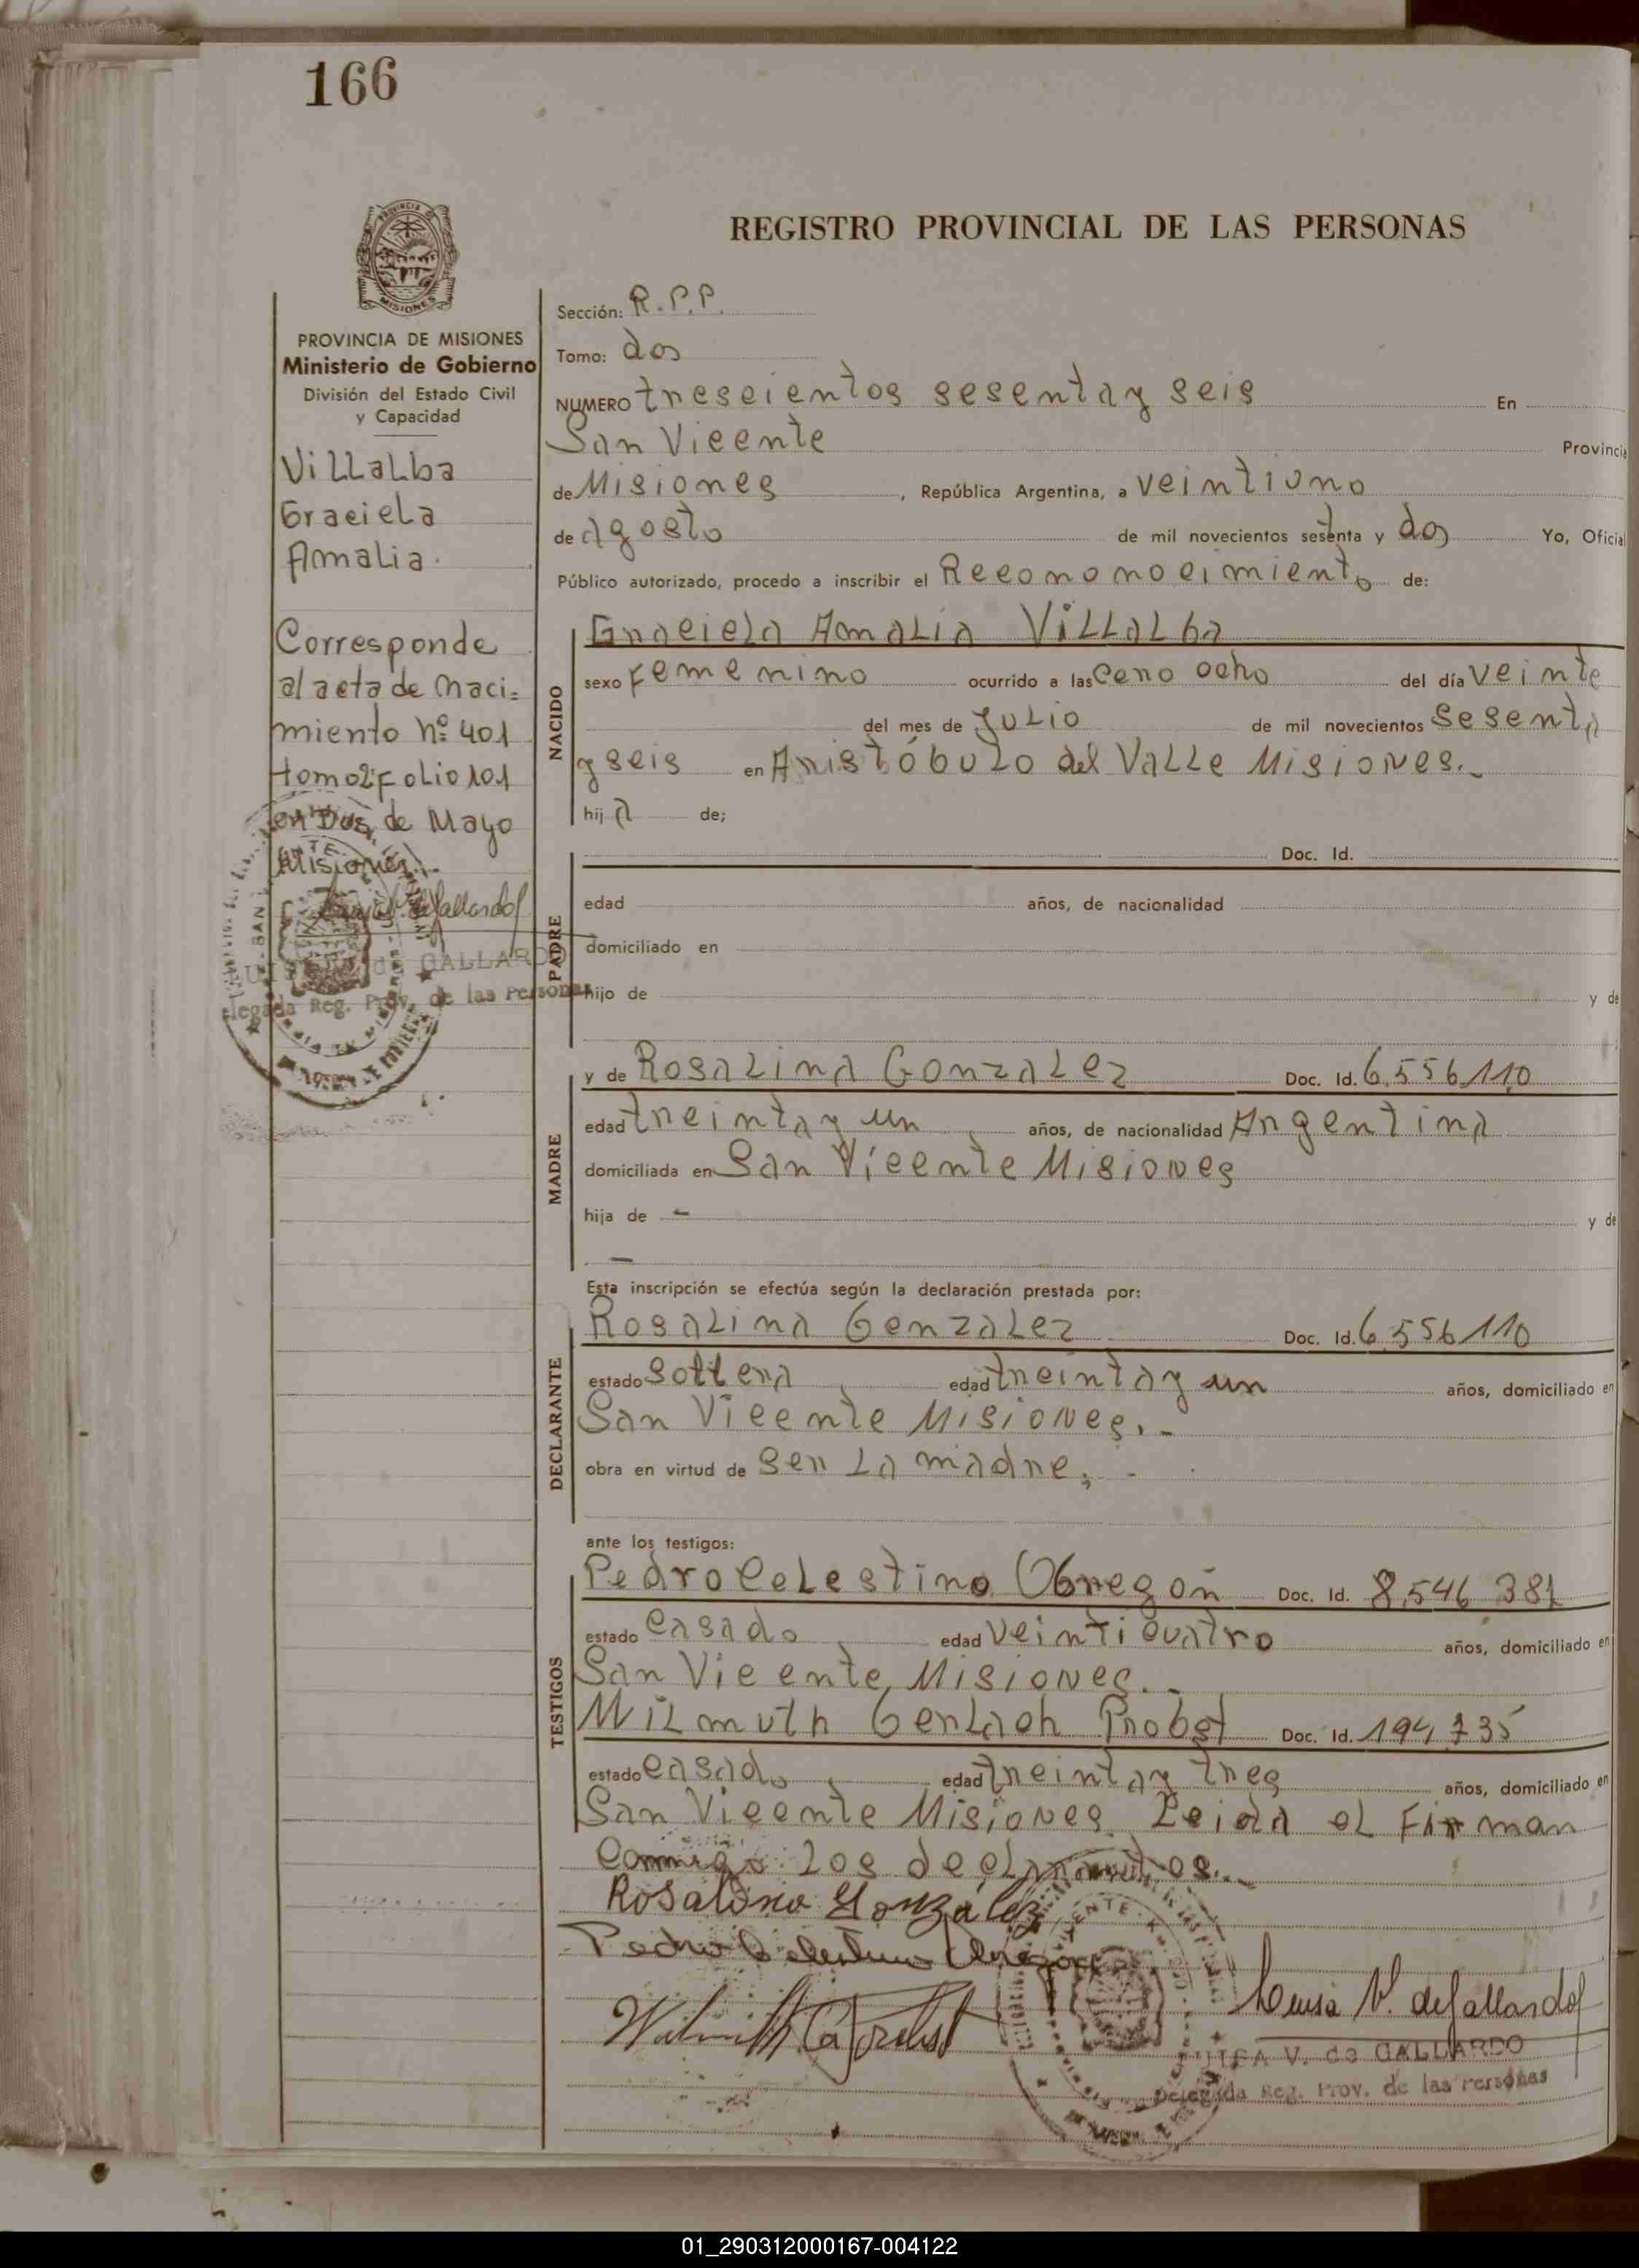 166
PROVINCIA DE MISIONES
PROVINCIA DE MISIONES
Ministerio de Gobierno
División del Estado Civil
y Capacidad
Villalba
Graciela
Amalia.
Corresponde
al acta de naci=
miento nº 401
tomo 2º Folio 101
en Dos de Mayo
Misiones.-
de GALLARDO
Reg. Prov. de las Personas
REGISTRO PROVINCIAL DE LAS PERSONAS
Sección: R.P.P.
Tomo: dos
NUMERO trescientos sesenta y seis En
San Vicente Provincia
de Misiones , República Argentina, a veintiuno
de agosto de mil novecientos setenta y dos Yo, Oficial
Público autorizado, procedo a inscribir el Recononocimiento de:
NACIDO
Graciela Amalia Villalba
sexo femenino ocurrido a las cero ocho del día veinte
del mes de Julio de mil novecientos sesenta
y seis en Aristóbulo del Valle Misiones.-
hija de;
PADRE
Doc. Id.
edad años, de nacionalidad
domiciliado en
hijo de y de
MADRE
y de Rosalina Gonzalez Doc. Id. 6.556.110
edad treinta y un años, de nacionalidad Argentina
domiciliada en San Vicente Misiones
hija de - y de
-
Esta inscripción se efectúa según la declaración prestada por:
DECLARANTE
Rosalina Gonzalez Doc. Id. 6.556110
estado soltera edad treinta y un años, domiciliado en
San Vicente Misiones.-
obra en virtud de ser la madre, -
ante los testigos:
TESTIGOS
Pedro Celestino Obregon Doc. Id. 8.546 381
estado casado edad veinticuatro años, domiciliado en
San Vicente, Misiones.-
Wilmuth Gerlach Probst Doc. Id. 194.735
estado casado edad treinta y tres años, domiciliado en
San Vicente Misiones Leida el Firman
conmigo los declarantes.-
Rosalina González
Pedro Celestino Obregon
Luisa V. de Gallardo
LUISA V. de GALLARDO
Delegada Reg. Prov. de las Personas
01_290312000167-004122